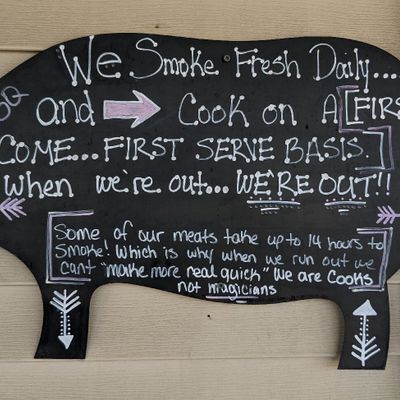 We Smoke Fresh Daily...
and → Cook on A [FIRS
COME... FIRST SERVE BASIS.]
When we're out... WE'RE OUT!!
Some of our meats take up to 14 hours to
Smoke! Which is why when we run out we
cant "make more real quick" We are Cooks
not magicians